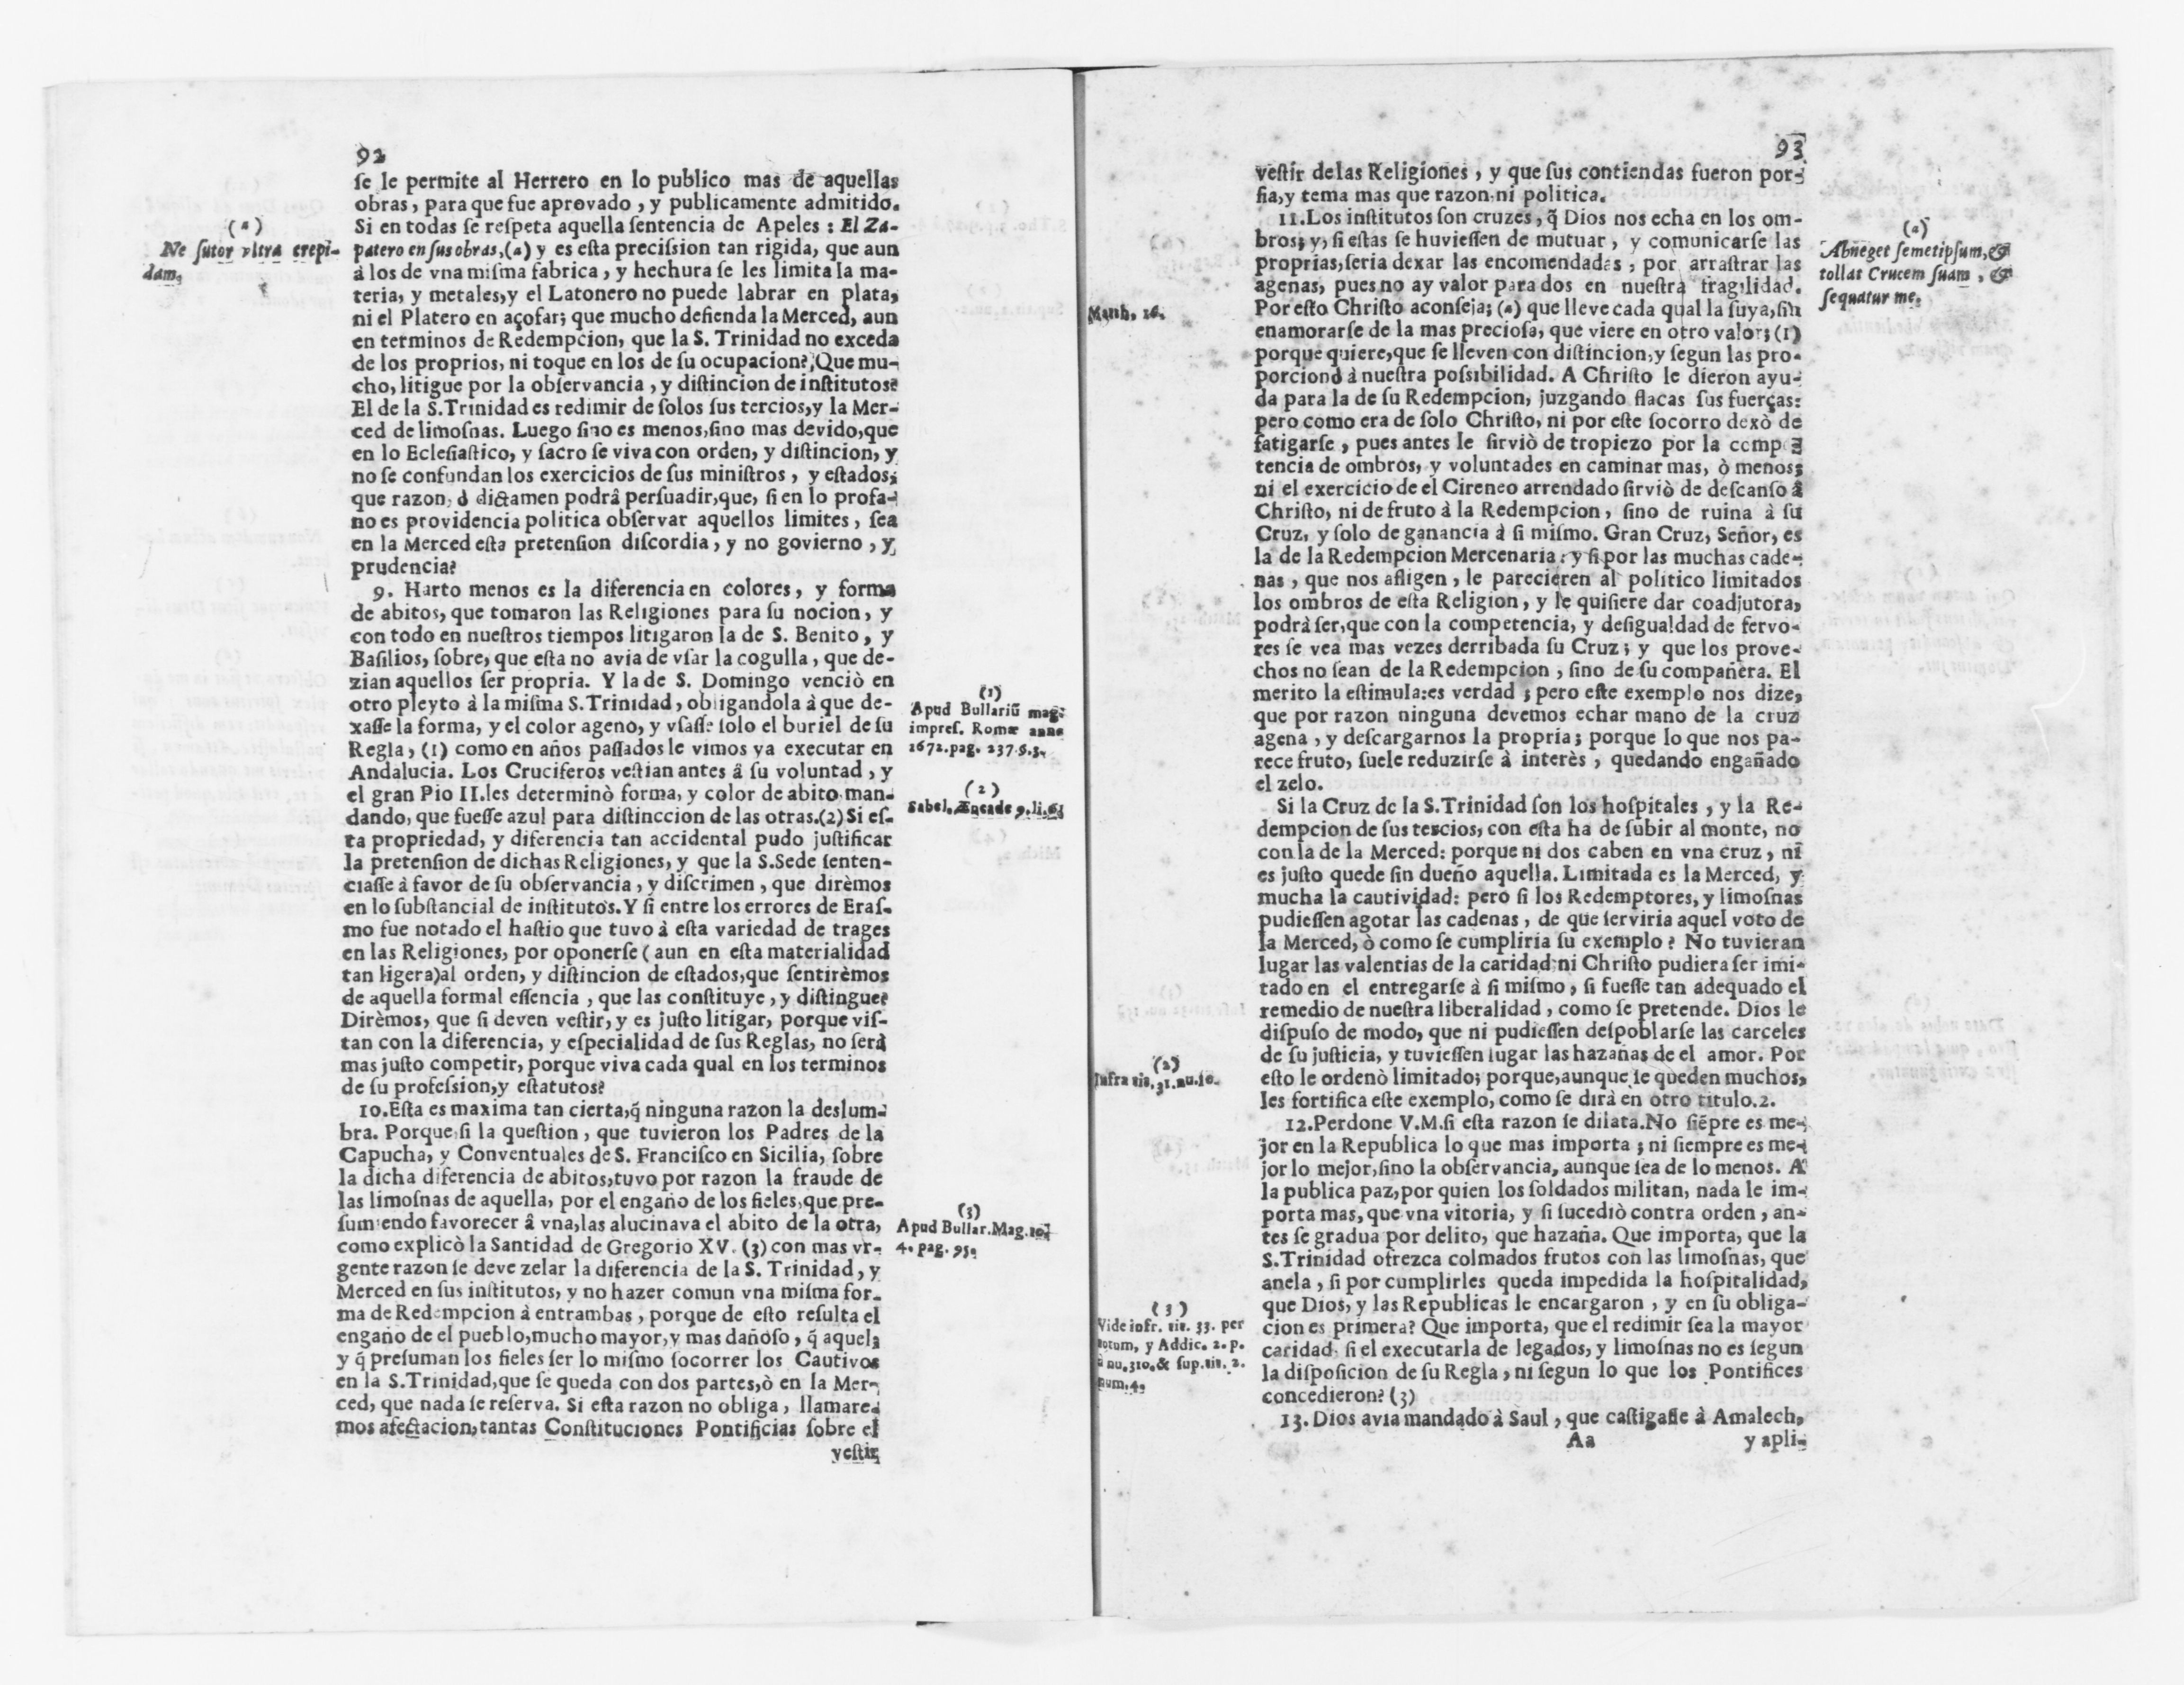 92
se le permite al Herrero en lo publico mas de aquellas
obras, para que fue aprovado, y publicamente admitido.
Si en todas se respeta aquella sentencia de Apeles: El Za-
patero en sus obras,(a) y es esta precission tan rigida, que aun
à los de vna misma fabrica, y hechura se les limita la ma-
teria, y metales,y el Latonero no puede labrar en plata,
ni el Platero en açofar; que mucho defienda la Merced, aun
en terminos de Redempcion, que la S. Trinidad no exceda
de los proprios, ni toque en los de su ocupacion? Que mu-
cho, litigue por la observancia, y distincion de institutos?
El de la S.Trinidad es redimir de solos sus tercios,y la Mer-
ced de limosnas. Luego sino es menos,sino mas devido,que
en lo Eclesiastico, y sacro se viva con orden, y distincion, y
no se confundan los exercicios de sus ministros, y estados;
que razon, ò dictamen podrâ persuadir,que, si en lo profa-
no es providencia politica observar aquellos limites, sea
en la Merced esta pretension discordia, y no govierno, y
prudencia?
9. Harto menos es la diferencia en colores, y forma
de abitos, que tomaron las Religiones para su nocion, y
con todo en nuestros tiempos litigaron la de S. Benito, y
Basilios, sobre, que esta no avia de vsar la cogulla, que de-
zian aquellos ser propria. Y la de S. Domingo venciò en
otro pleyto à la misma S.Trinidad, obligandola à que de-
xasse la forma, y el color ageno, y vsasse solo el buriel de su
Regla, (1) como en años passados le vimos ya executar en
Andalucia. Los Cruciferos vestian antes â su voluntad, y
el gran Pio II.les determinò forma, y color de abito man-
dando, que fuesse azul para distinccion de las otras.(2) Si es-
ta propriedad, y diferencia tan accidental pudo justificar
la pretension de dichas Religiones, y que la S.Sede senten-
ciasse à favor de su observancia, y discrimen, que dirèmos
en lo substancial de institutos.Y si entre los errores de Eras-
mo fue notado el hastio que tuvo à esta variedad de trages
en las Religiones, por oponerse (aun en esta materialidad
tan ligera)al orden, y distincion de estados,que sentirèmos
de aquella formal essencia, que las constituye, y distingue?
Dirèmos, que si deven vestir, y es justo litigar, porque vis-
tan con la diferencia, y especialidad de sus Reglas, no serà
mas justo competir, porque viva cada qual en los terminos
de su profession,y estatutos?
10.Esta es maxima tan cierta,q̃ ninguna razon la deslum-
bra. Porque si la question, que tuvieron los Padres de la
Capucha, y Conventuales de S. Francisco en Sicilia, sobre
la dicha diferencia de abitos,tuvo por razon la fraude de
las limosnas de aquella, por el engaño de los fieles,que pre-
sumiendo favorecer â vna,las alucinava el abito de la otra,
como explicò la Santidad de Gregorio XV. (3) con mas vr-
gente razon se deve zelar la diferencia de la S. Trinidad, y
Merced en sus institutos, y no hazer comun vna misma for-
ma de Redempcion à entrambas, porque de esto resulta el
engaño de el pueblo,mucho mayor,y mas dañoso, q̃ aquel;
y q̃ presuman los fieles ser lo mismo socorrer los Cautivos
en la S.Trinidad,que se queda con dos partes,ò en la Mer-
ced, que nada se reserva. Si esta razon no obliga, llamare-
mos afectacion,tantas Constituciones Pontificias sobre el
vestir
(a)
Ne sutor vltra crepi-
dam.
(1)
Apud Bullariũ mag.
impres. Romæ anno
1672.pag. 237.§.3.
(2)
Sabel. Æneade 9.li.6.
(3)
Apud Bullar.Mag.to.
4. pag. 95.
93
vestir de las Religiones, y que sus contiendas fueron por-
fia,y tema mas que razon ni politica.
11.Los institutos son cruzes, q̃ Dios nos echa en los om-
bros; y, si estas se huviessen de mutuar, y comunicarse las
proprias,seria dexar las encomendadas, por arrastrar las
agenas, pues no ay valor para dos en nuestra fragilidad.
Por esto Christo aconseja; (a) que lleve cada qual la suya,sin
enamorarse de la mas preciosa, que viere en otro valor; (1)
porque quiere,que se lleven con distincion,y segun las pro-
porciond à nuestra possibilidad. A Christo le dieron ayu-
da para la de su Redempcion, juzgando flacas sus fuerças:
pero como era de solo Christo, ni por este socorro dexò de
fatigarse, pues antes le sirviò de tropiezo por la compe-
tencia de ombros, y voluntades en caminar mas, ò menos;
ni el exercicio de el Cireneo arrendado sirviò de descanso â
Christo, ni de fruto à la Redempcion, sino de ruina à su
Cruz, y solo de ganancia à si mismo. Gran Cruz, Señor, es
la de la Redempcion Mercenaria: y si por las muchas cade-
nas, que nos afligen, le parecieren al politico limitados
los ombros de esta Religion, y le quisiere dar coadjutora,
podrà ser,que con la competencia, y desigualdad de fervo-
res se vea mas vezes derribada su Cruz; y que los prove-
chos no sean de la Redempcion, sino de su compañera. El
merito la estimula:es verdad; pero este exemplo nos dize,
que por razon ninguna devemos echar mano de la cruz
agena, y descargarnos la propria; porque lo que nos pa-
rece fruto, suele reduzirse à interès, quedando engañado
el zelo.
Si la Cruz de la S.Trinidad son los hospitales, y la Re-
dempcion de sus tercios, con esta ha de subir al monte, no
con la de la Merced: porque ni dos caben en vna cruz, ni
es justo quede sin dueño aquella. Limitada es la Merced, y
mucha la cautividad: pero si los Redemptores, y limosnas
pudiessen agotar las cadenas, de que serviria aquel voto de
la Merced, ò como se cumpliria su exemplo? No tuvieran
lugar las valentias de la caridad ni Christo pudiera ser imi-
tado en el entregarse à si mismo, si fuesse tan adequado el
remedio de nuestra liberalidad, como se pretende. Dios le
dispuso de modo, que ni pudiessen despoblarse las carceles
de su justicia, y tuviessen lugar las hazañas de el amor. Por
esto le ordenò limitado; porque,aunque le queden muchos,
les fortifica este exemplo, como se dirà en otro titulo.2.
12.Perdone V.M.si esta razon se dilata.No siẽpre es me-
jor en la Republica lo que mas importa; ni siempre es me-
jor lo mejor,sino la observancia, aunque sea de lo menos. A
la publica paz,por quien los soldados militan, nada le im-
porta mas, que vna vitoria, y si sucediò contra orden, an-
tes se gradua por delito, que hazaña. Que importa, que la
S.Trinidad ofrezca colmados frutos con las limosnas, que
anela, si por cumplirles queda impedida la hospitalidad,
que Dios, y las Republicas le encargaron, y en su obliga-
cion es primera? Que importa, que el redimir sea la mayor
caridad, si el executarla de legados, y limosnas no es segun
la disposicion de su Regla, ni segun lo que los Pontifices
concedieron? (3)
13. Dios avia mandado à Saul, que castigasse à Amalech,
Aa y apli-
(a)
Abneget semetipsum,&
tollat Crucem suam, &
sequatur me.
Matth. 16.
(2)
Infra tit. 31. nu.10.
(3)
Vide infr. tit. 33. per
totum, y Addic. 2. p.
à nu.310.& sup.tit. 2.
num.4.